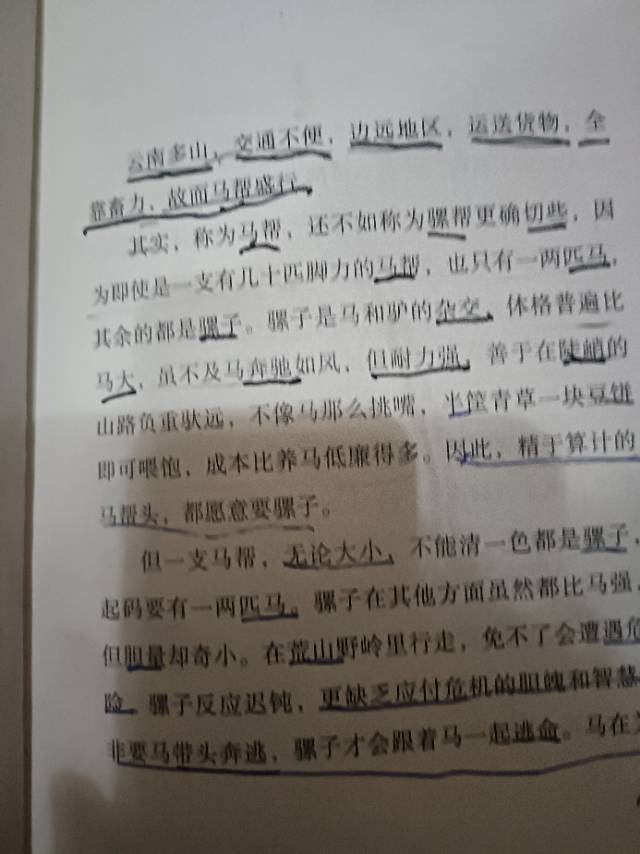 云南多山，交通不便，边远地区，运送货物，全
靠畜力，故而马帮盛行。
其实，称为马帮，还不如称为骡帮更确切些，因
为即使是一支有几十匹脚力的马帮，也只有一两匹马，
其余的都是骡子。骡子是马和驴的杂交，体格普遍比
马大，虽不及马奔驰如风，但耐力强，善于在陡峭的
山路负重驮远，不像马那么挑嘴，半筐青草一块豆饼
即可喂饱，成本比养马低廉得多。因此，精于算计的
马帮头，都愿意要骡子。
但一支马帮，无论大小，不能清一色都是骡子，
起码要有一两匹马。骡子在其他方面虽然都比马强，
但胆量却奇小。在荒山野岭里行走，免不了会遭遇危
险，骡子反应迟钝，更缺乏应付危机的胆魄和智慧，
非要马带头奔逃，骡子才会跟着马一起逃命。马在